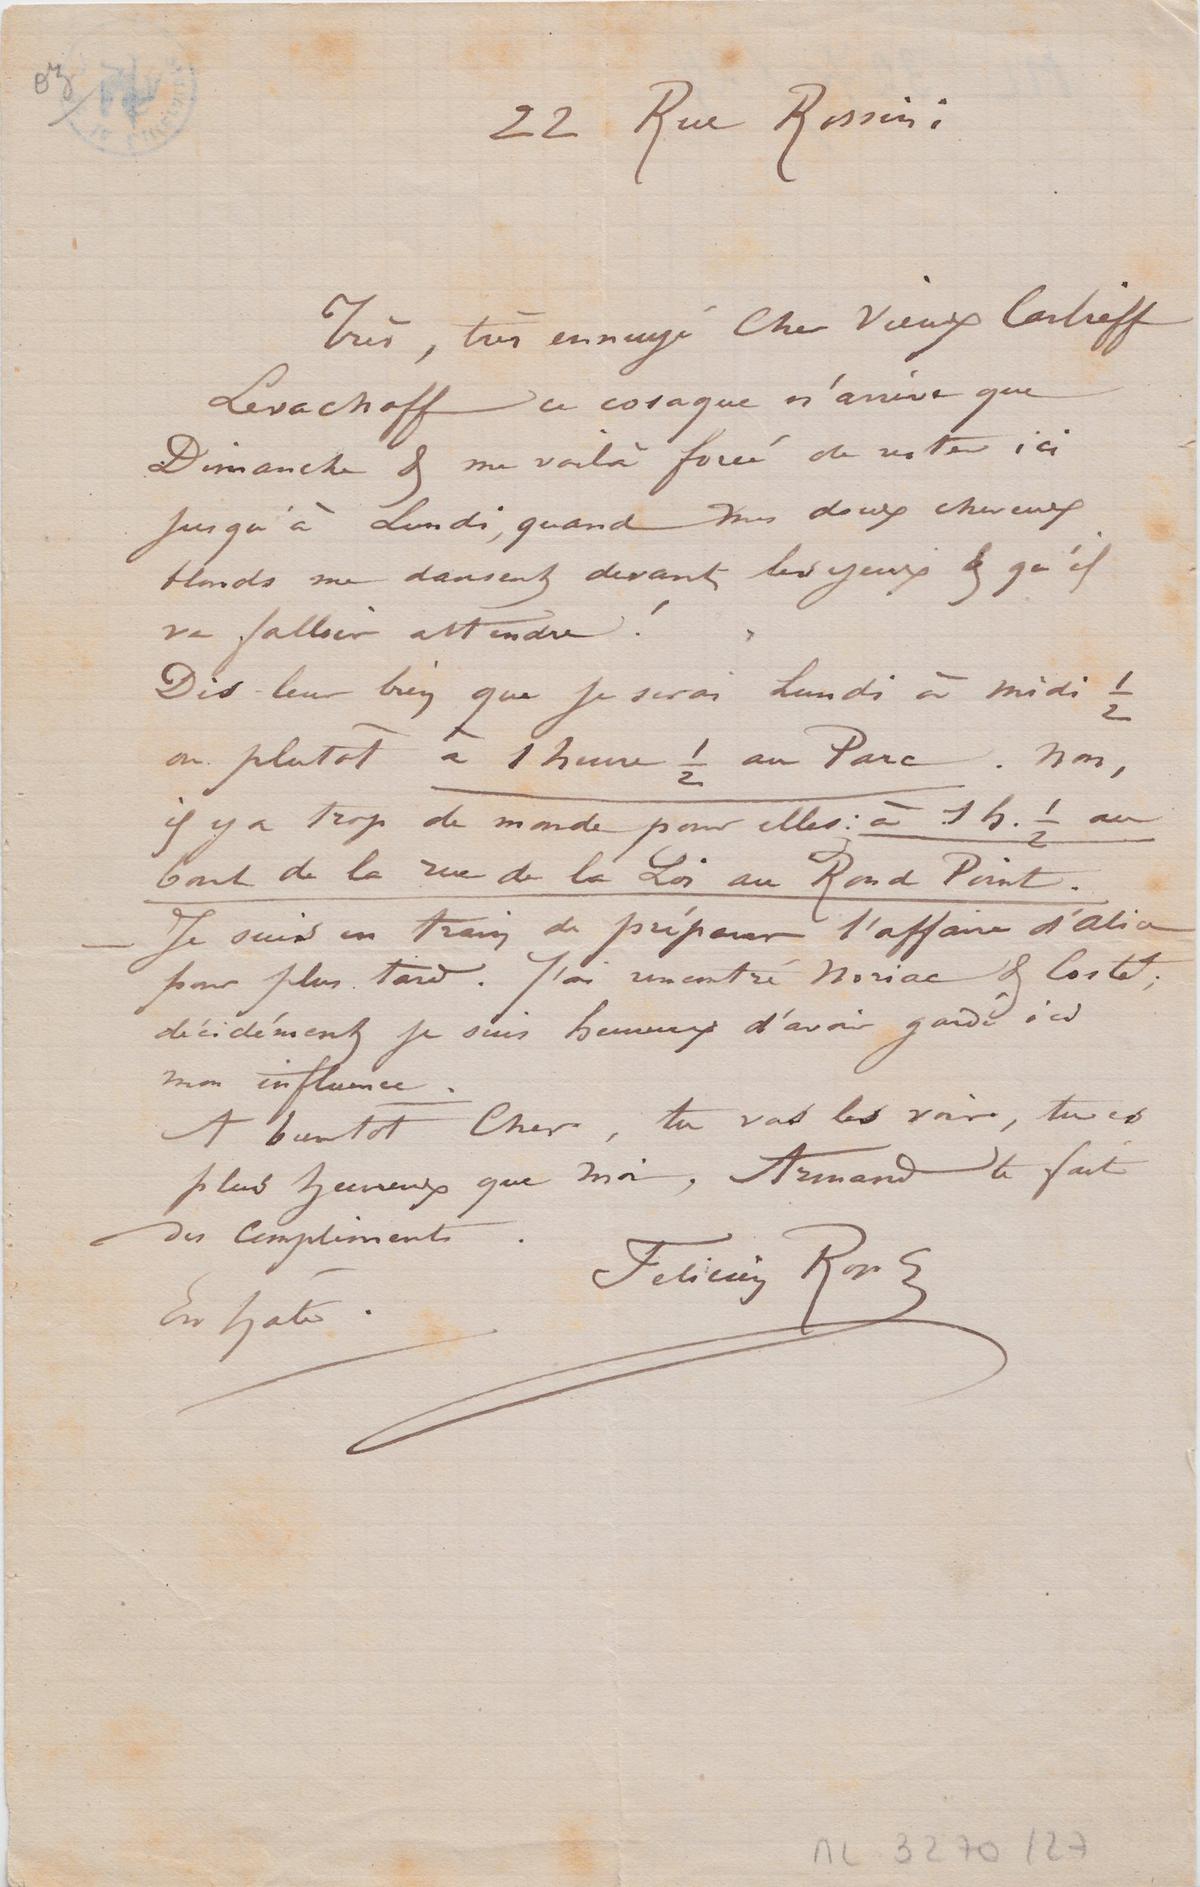 22 Rue Rossini
Très, très ennuyé Cher Vieux
Levachoff ce cosaque n'arrive que
Dimanche & me voilà forcé de rester ici
jusqu'à Lundi, quand mes doux cheveux
blonds me dansent devant les yeux & qu'il
va falloir attendre !
Dis-leur bien que je serai Lundi à midi 1/2
ou plutôt à 1 heure 1/2 au Parc. Non,
il y a trop de monde pour elles: à 1 h. 1/2 au
bout de la rue de la Loi au Rond Point.
— Je suis en train de préparer l'affaire d'Alice
pour plus tard. J'ai rencontré Noriac & Costet;
décidément je suis heureux d'avoir gardé ici
mon influence.
A bientôt Cher, tu vas les voir, tu es
plus heureux que moi, Armand te fait
des compliments.
Felicien Rops
En hâte.
ML 3270/27